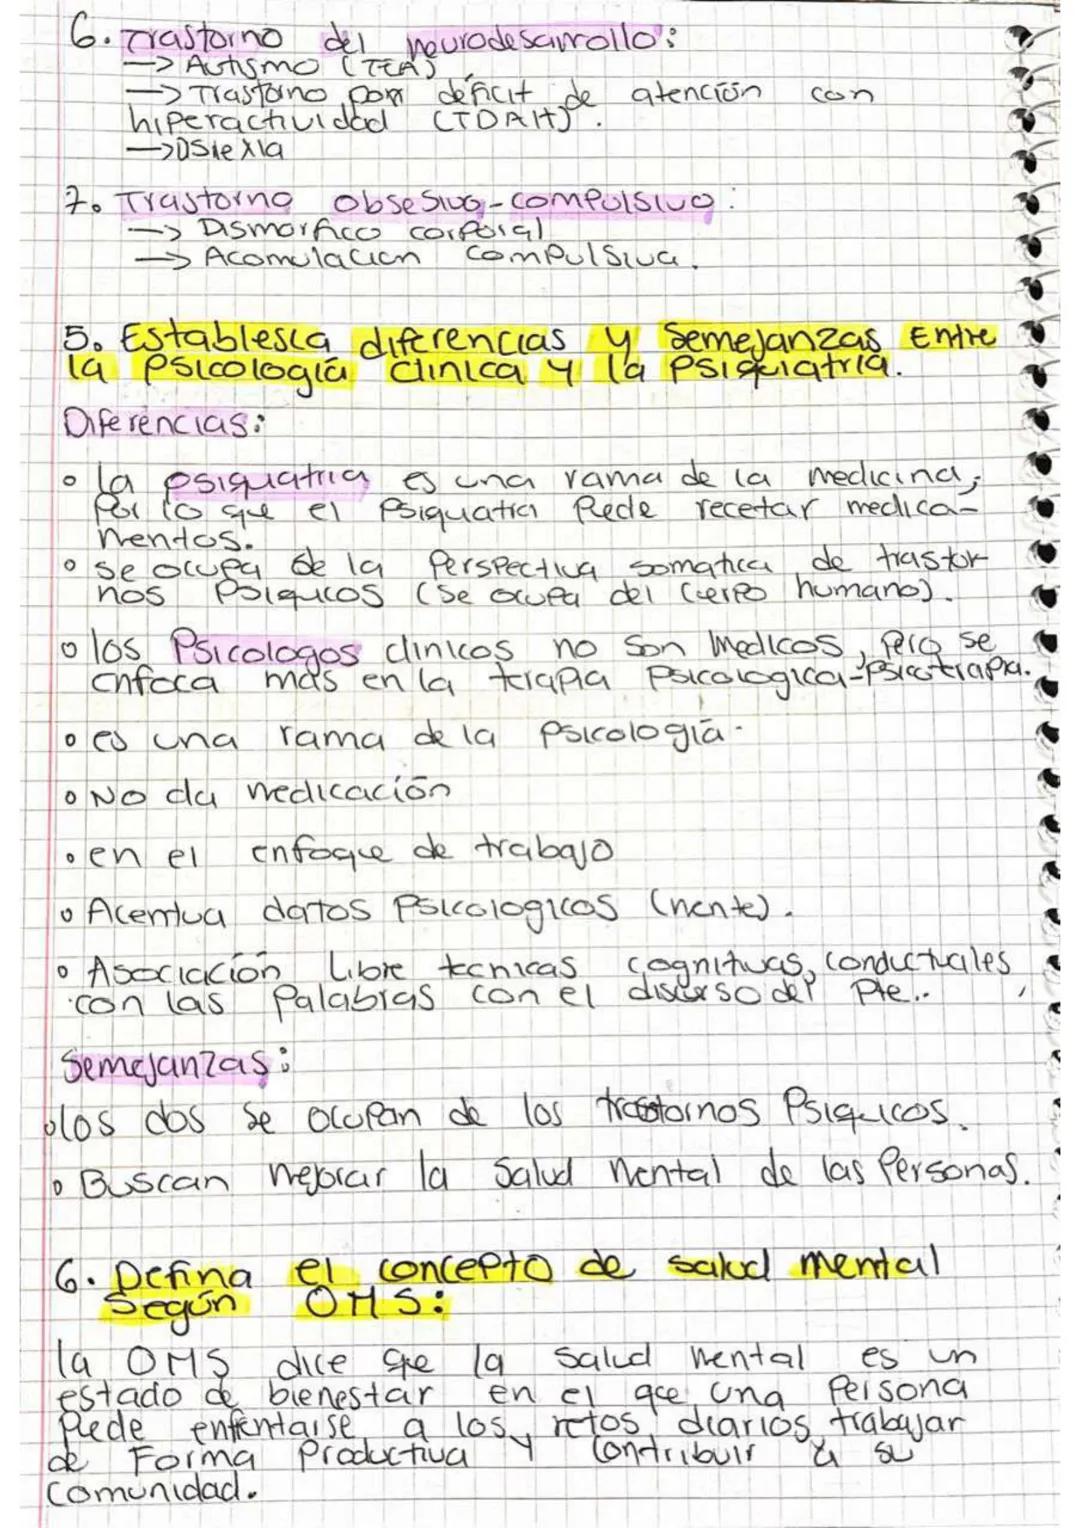 6. Trastorno del neurodesarrollo:
→ Autismo (TEA)
→ Trastorno por déficit de atención con
hiperactividad (TDAH).
→ Dslexia
7. Trastorno obsesivo-compulsivo:
→ Dismorfico corporal
→ Acomulacion compulsiva.
5. Establesca diferencias y semejanzas Entre
la psicología clinica y la psiquiatria.
Diferencias:
° la psiquatria es una rama de la medicina,
Por lo que el Psiquatra Puede recetar medica-
mentos.
° se ocupa de la Perspectiva somatica de trastor
nos Psiquicos (se ocupa del cuerpo humano).
° los Psicologos clinicos no son medicos, pero se
enfoca mas en la terapia psicologica-psicoterapia.
° es una rama de la psicología.
° NO da medicación
° en el enfoque de trabajo
° Acentua datos Psicologicos (mente).
° Asociación Libre tecnicas cognitivas, conductuales
con las palabras con el discurso del Pte..
Semejanzas:
° los dos se ocupan de los trastornos Psiquicos.
° Buscan mejorar la salud mental de las Personas.
6. Defina el concepto de salud mental
Según OMS:
la OMS dice que la salud mental es un
estado de bienestar en el que una Persona
Puede enfentarse a los retos diarios, trabajar
de Forma Productiva y contribuir a su
comunidad.